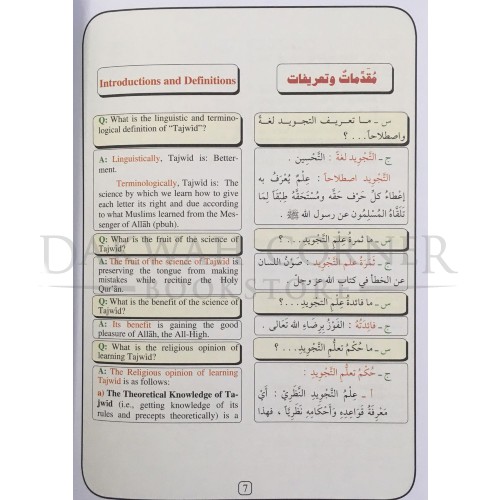 Introductions and Definitions
Q: What is the linguistic and termino-
logical definition of "Tajwid"?
A: Linguistically, Tajwid is: Better-
ment.
Terminologically, Tajwid is: The
science by which we learn how to give
each letter its right and due according
to what Muslims learned from the Mes-
senger of Allāh (pbuh).
Q: What is the fruit of the science of
Tajwid?
A: The fruit of the science of Tajwid is
preserving the tongue from making
mistakes while reciting the Holy
Qur'ān.
Q: What is the benefit of the science of
Tajwid?
A: Its benefit is gaining the good
pleasure of Allāh, the All-High.
Q: What is the religious opinion of
learning Tajwid?
A: The Religious opinion of learning
Tajwid is as follows:
a) The Theoretical Knowledge of Ta-
jwid (i.e., getting knowledge of its
rules and precepts theoretically) is a
مُقَدِّمَاتٌ وتعريفات
س ـ مـا تعـريـف التجـويـد لغـةً
واصطلاحاً... ؟
ج ـ التَّجْوِيد لغةً : التَّحْسِين .
التَّجْوِيد اصطلاحاً : عِلْمٌ يُعْرَفُ بِه
إعْطَاءُ كلِّ حَرْف حقَّه ومُسْتَحَقَّهُ طِبْقاً لِمَا
تَلَقَّاهُ المُسْلِمُون عن رسول الله ﷺ .
س ـ ما ثمرةُ عِلْم التَّجْوِيد... ؟
ج ـ ثَمَرَةُ عِلْم التَّجْوِيد : صَوْنُ اللسان
عن الخَطأ في كتاب الله عز وجلّ
س ـ ما فائدةُ عِلْم التجويد...؟
ج ـ فائِدَتُهُ : الفَوْزُ بِرِضَاءِ الله تعالى .
س ـ ما حُكْمُ تعلُّم التَّجْوِيد...؟
ج ـ حُكْمُ تعلُّمِ التَّجْوِيد :
أ ـ عِلْمُ التَّجْوِيد النَّظَرِيّ : أَيْ
مَعْرِفَةُ قَوَاعِدِهِ وَأَحْكَامِهِ نَظَرِيّاً ، فهذا
DAKWAH CORNER
BOOKSTORE
7